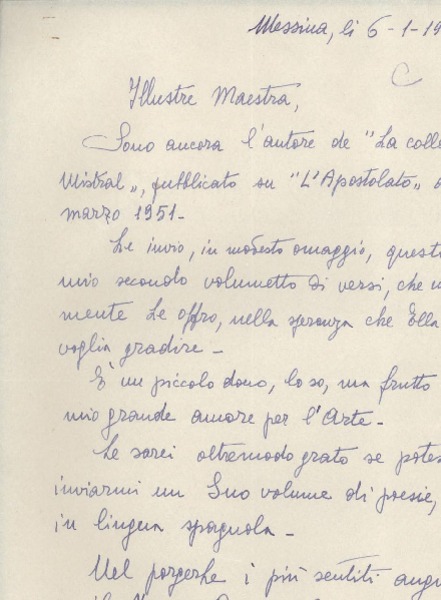 Messina, li 6-1-19
C
Illustre Maestra,
Sono ancora l'autore de "La colle
Mistral", pubblicato su "L'Apostolato"
marzo 1951-
Le invio, in modesto omaggio, questo
mio secondo volumetto di versi, che
mente Le offro, nella speranza che Ella
voglia gradire-
È un piccolo dono, lo so, ma frutto
mio grande amore per l'Arte-
Le sarei oltremodo grato se potes
inviarmi un Suo volume di poesie,
in lingua spagnola-
Nel porgerLe i più sentiti augu